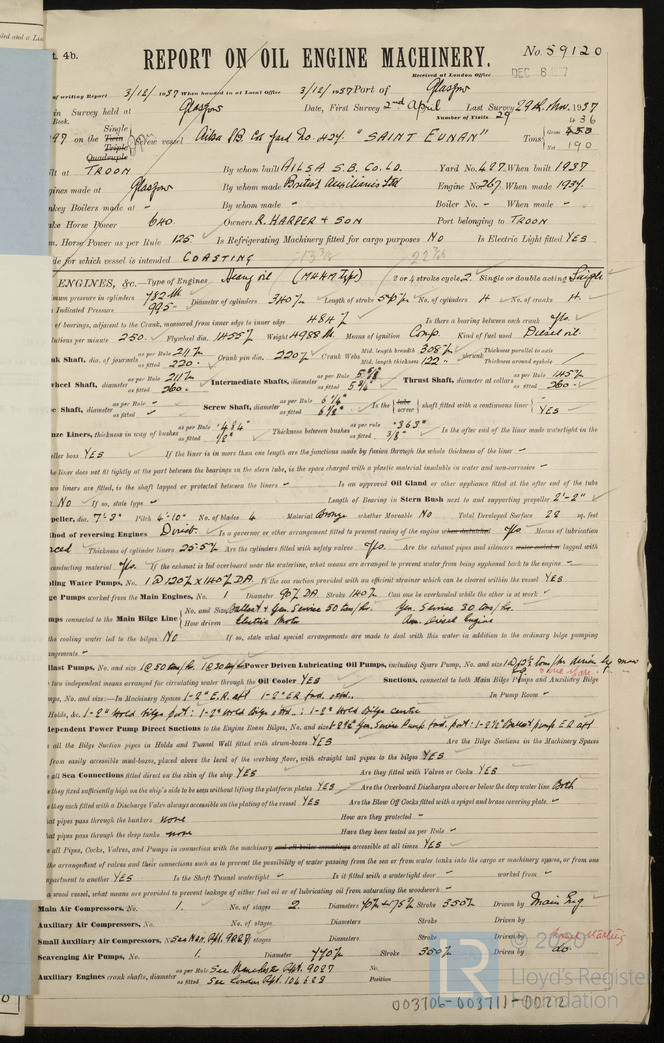 t. 4b.
REPORT ON OIL ENGINE MACHINERY.
No. 59120
Received at London Office
DEC 8 1937
of writing Report 3/12/1937 When handed in at Local Office 3/12/1937 Port of Glasgow
in Survey held at Glasgow Date, First Survey 2nd April Last Survey 29th Nov. 1937
Book. Number of Visits 29
97 on the Single Twin Triple Quadruple Screw vessel Ailsa S.B. Cos Yard No. 427. "SAINT EUNAN" Tons Gross 436 Net 190
lt at TROON By whom built AILSA S.B. Co. LD. Yard No. 427. When built 1937
gines made at Glasgow By whom made British Auxiliaries Ltd Engine No. 267. When made 1937.
nkey Boilers made at - By whom made - Boiler No. - When made -
ake Horse Power 640. Owners R. HARPER & SON Port belonging to TROON
m. Horse Power as per Rule 125 Is Refrigerating Machinery fitted for cargo purposes NO Is Electric Light fitted YES
de for which vessel is intended COASTING
ENGINES, &c. Type of Engines Heavy oil 2 or 4 stroke cycle 2. Single or double acting Single
mum pressure in cylinders Diameter of cylinders 340 Length of stroke No. of cylinders 4 No. of cranks 4.
Indicated Pressure
of bearings, adjacent to the Crank, measured from inner edge to inner edge 484 Is there a bearing between each crank Yes.
lutions per minute 250. Flywheel dia. 1455 Weight Means of ignition Comp. Kind of fuel used Diesel oil
nk Shaft, dia. of journals as per Rule 211 as fitted 220 Crank pin dia. 220 Crank Webs Mid. length breadth 308 Mid. length thickness 122 shrunk Thickness parallel to axis Thickness around eyehole
wheel Shaft, diameter as per Rule 211 as fitted 260 Intermediate Shafts, diameter as per Rule as fitted Thrust Shaft, diameter at collars as per Rule as fitted 260
e Shaft, diameter as per Rule as fitted Screw Shaft, diameter as per Rule as fitted Is the tube screw shaft fitted with a continuous liner YES
nze Liners, thickness in way of bushes as per Rule .484" as fitted Thickness between bushes as per rule .363" as fitted 3/8" Is the after end of the liner made watertight in the
eller boss YES If the liner is in more than one length are the junctions made by fusion through the whole thickness of the liner -
he liner does not fit tightly at the part between the bearings in the stern tube, is the space charged with a plastic material insoluble in water and non-corrosive -
wo liners are fitted, is the shaft lapped or protected between the liners - Is an approved Oil Gland or other appliance fitted at the after end of the tube
NO If so, state type - Length of Bearing in Stern Bush next to and supporting propeller 2'-2"
peller, dia. 7'-3" Pitch 4'-10" No. of blades 4 Material Bronze whether Moveable NO Total Developed Surface 22 sq. feet
hod of reversing Engines Direct. Is a governor or other arrangement fitted to prevent racing of the engine when declutched Yes. Means of lubrication
Thickness of cylinder liners Are the cylinders fitted with safety valves Yes. Are the exhaust pipes and silencers water cooled or lagged with
conducting material Yes. If the exhaust is led overboard near the waterline, what means are arranged to prevent water from being syphoned back to the engine -
ling Water Pumps, No. 1 @ 120 x 140 DA. Is the sea suction provided with an efficient strainer which can be cleared within the vessel YES
ge Pumps worked from the Main Engines, No. 1 Diameter 90 DA. Stroke 140 Can one be overhauled while the other is at work -
mps connected to the Main Bilge Line No. and Size Ballast & Gen. Service 50 tons/hr. Gen. Service 30 tons/hr.
How driven Electric Motor Diesel Engine
the cooling water led to the bilges NO If so, state what special arrangements are made to deal with this water in addition to the ordinary bilge pumping
angements -
llast Pumps, No. and size 1 @ 50 tons/hr. Power Driven Lubricating Oil Pumps, including Spare Pump, No. and size
two independent means arranged for circulating water through the Oil Cooler YES Suctions, connected to both Main Bilge Pumps and Auxiliary Bilge
mps, No. and size:-In Machinery Spaces 1-2" E.R. aft 1-2" E.R. ford. In Pump Room -
Holds, &c. 1-2" Hold Bilge port: 1-2" Hold Bilge stbd.: 1-2" Hold Bilge centre
dependent Power Pump Direct Suctions to the Engine Room Bilges, No. and size Gen. Service Pump ford. port: Ballast pump E.R. aft.
all the Bilge Suction pipes in Holds and Tunnel Well fitted with strum-boxes YES Are the Bilge Suctions in the Machinery Spaces
from easily accessible mud-boxes, placed above the level of the working floor, with straight tail pipes to the bilges YES
all Sea Connections fitted direct on the skin of the ship YES Are they fitted with Valves or Cocks YES
e they fixed sufficiently high on the ship's side to be seen without lifting the platform plates YES Are the Overboard Discharges above or below the deep water line Both
e they each fitted with a Discharge Valve always accessible on the plating of the vessel YES Are the Blow Off Cocks fitted with a spigot and brass covering plate -
at pipes pass through the bunkers none How are they protected -
at pipes pass through the deep tanks none Have they been tested as per Rule -
e all Pipes, Cocks, Valves, and Pumps in connection with the machinery and all boiler mountings accessible at all times YES
the arrangement of valves and their connections such as to prevent the possibility of water passing from the sea or from water tanks into the cargo or machinery spaces, or from one
mpartment to another YES Is the Shaft Tunnel watertight - Is it fitted with a watertight door - worked from -
a wood vessel, what means are provided to prevent leakage of either fuel oil or of lubricating oil from saturating the woodwork -
Main Air Compressors, No. 1. No. of stages 2. Diameters Stroke 350 Driven by Main Eng.
Auxiliary Air Compressors, No. No. of stages Diameters Stroke Driven by
Small Auxiliary Air Compressors, No. See Man. Rpt. 9027 stages Diameters Stroke Driven by
Scavenging Air Pumps, No. 1. Diameter 770 Stroke 350 Driven by do.
Auxiliary Engines crank shafts, diameter as per Rule See Manchester Rpt. 9027 No.
as fitted See London Rpt. Position
© 2020
LR
Lloyd's Register
Foundation
003706-003711-0022